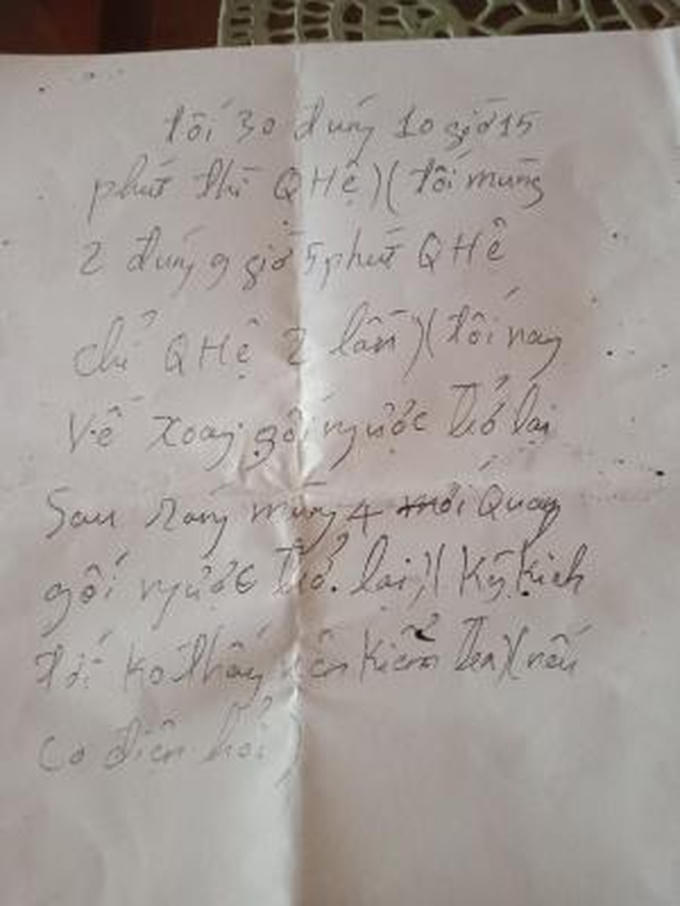 tối 30 đúng 10 giờ 15
phút thì QHệ)(tối mùng
2 đúng 9 giờ 5 phút QHệ
chỉ QHệ 2 lần)(tối nay
Về xoay gối ngược trở lại
Sau sáng mùng 4 mới Quay
gối ngược trở lại)(Kỳ Kịch
tới Ko thấy Kiểm tra)(nếu
Có điện hỏi)